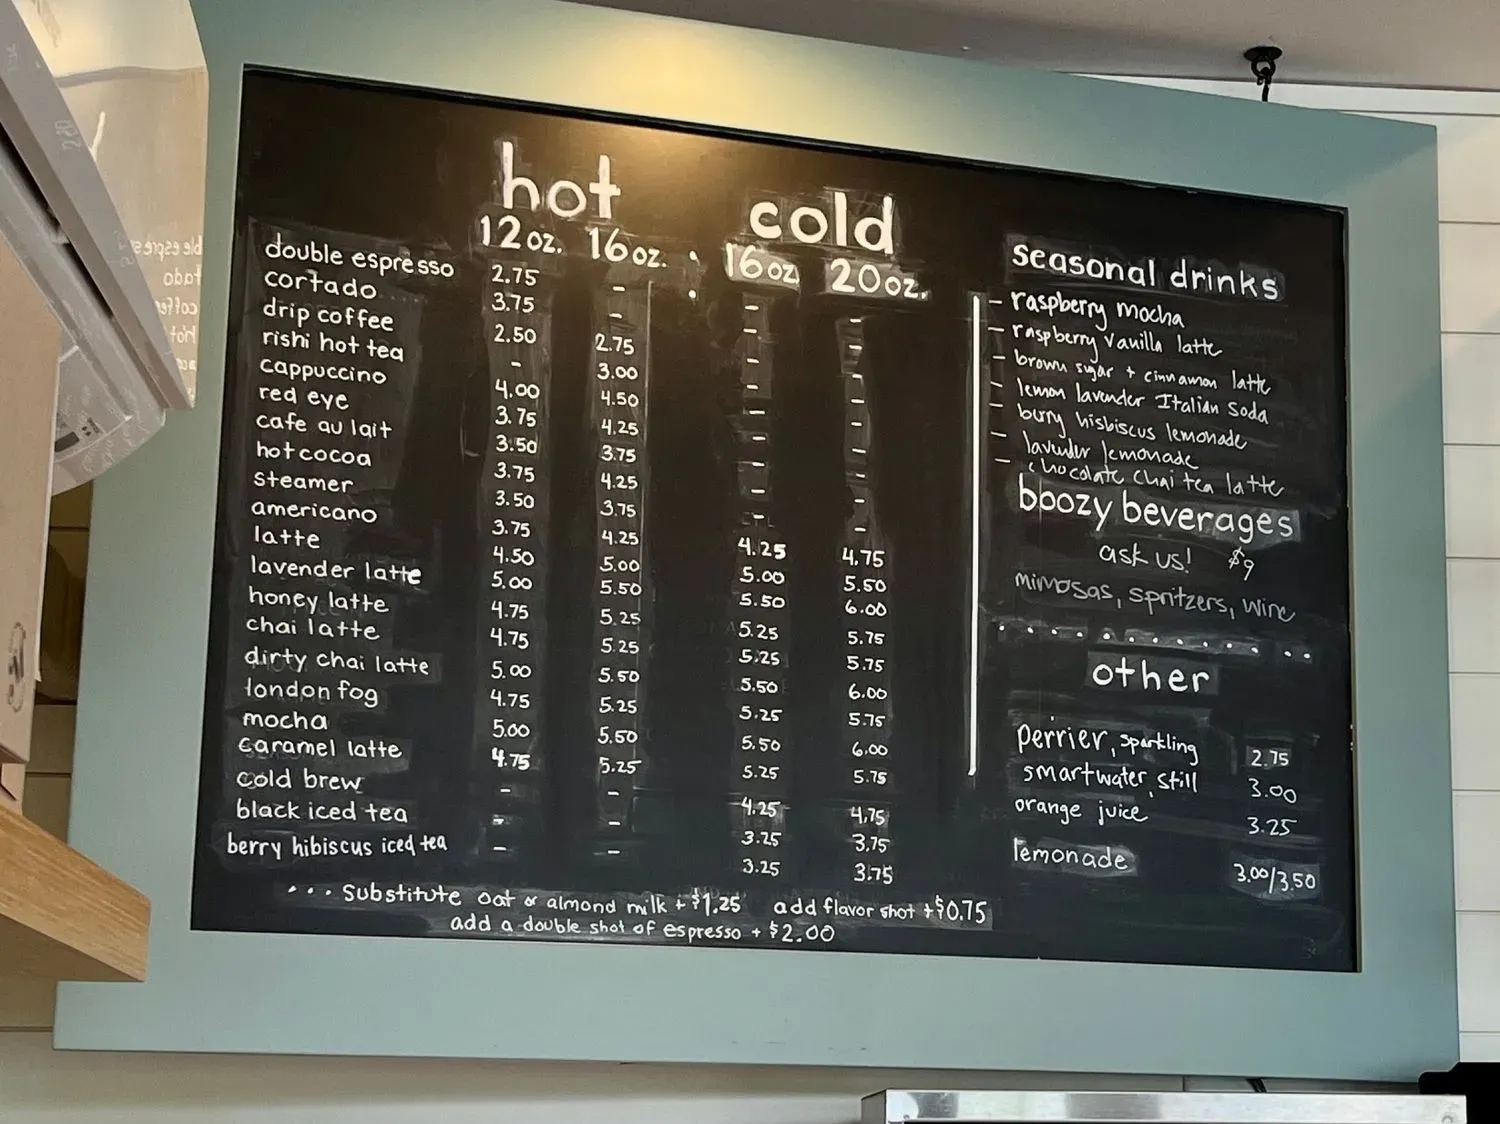 hot
12 oz. 16 oz. :
cold
16 oz. 20 oz.
double espresso 2.75 - - -
cortado 3.75 - - -
drip coffee 2.50 2.75 - -
rishi hot tea - 3.00 - -
cappuccino 4.00 4.50 - -
red eye 3.75 4.25 - -
cafe au lait 3.50 3.75 - -
hot cocoa 3.75 4.25 - -
steamer 3.50 3.75 - -
americano 3.75 4.25 4.25 4.75
latte 4.50 5.00 5.00 5.50
lavender latte 5.00 5.50 5.50 6.00
honey latte 4.75 5.25 5.25 5.75
chai latte 4.75 5.25 5.25 5.75
dirty chai latte 5.00 5.50 5.50 6.00
london fog 4.75 5.25 5.25 5.75
mocha 5.00 5.50 5.50 6.00
caramel latte 4.75 5.25 5.25 5.75
cold brew - - 4.25 4.75
black iced tea - - 3.25 3.75
berry hibiscus iced tea - - 3.25 3.75
... substitute oat or almond milk + $1.25 add flavor shot + $0.75
add a double shot of espresso + $2.00
seasonal drinks
- raspberry mocha
- raspberry vanilla latte
- brown sugar + cinnamon latte
- lemon lavender Italian soda
- berry hisbiscus lemonade
- lavender lemonade
- chocolate chai tea latte
boozy beverages
ask us! $9
mimosas, spritzers, wine
other
perrier, sparkling 2.75
smartwater, still 3.00
orange juice 3.25
lemonade 3.00/3.50